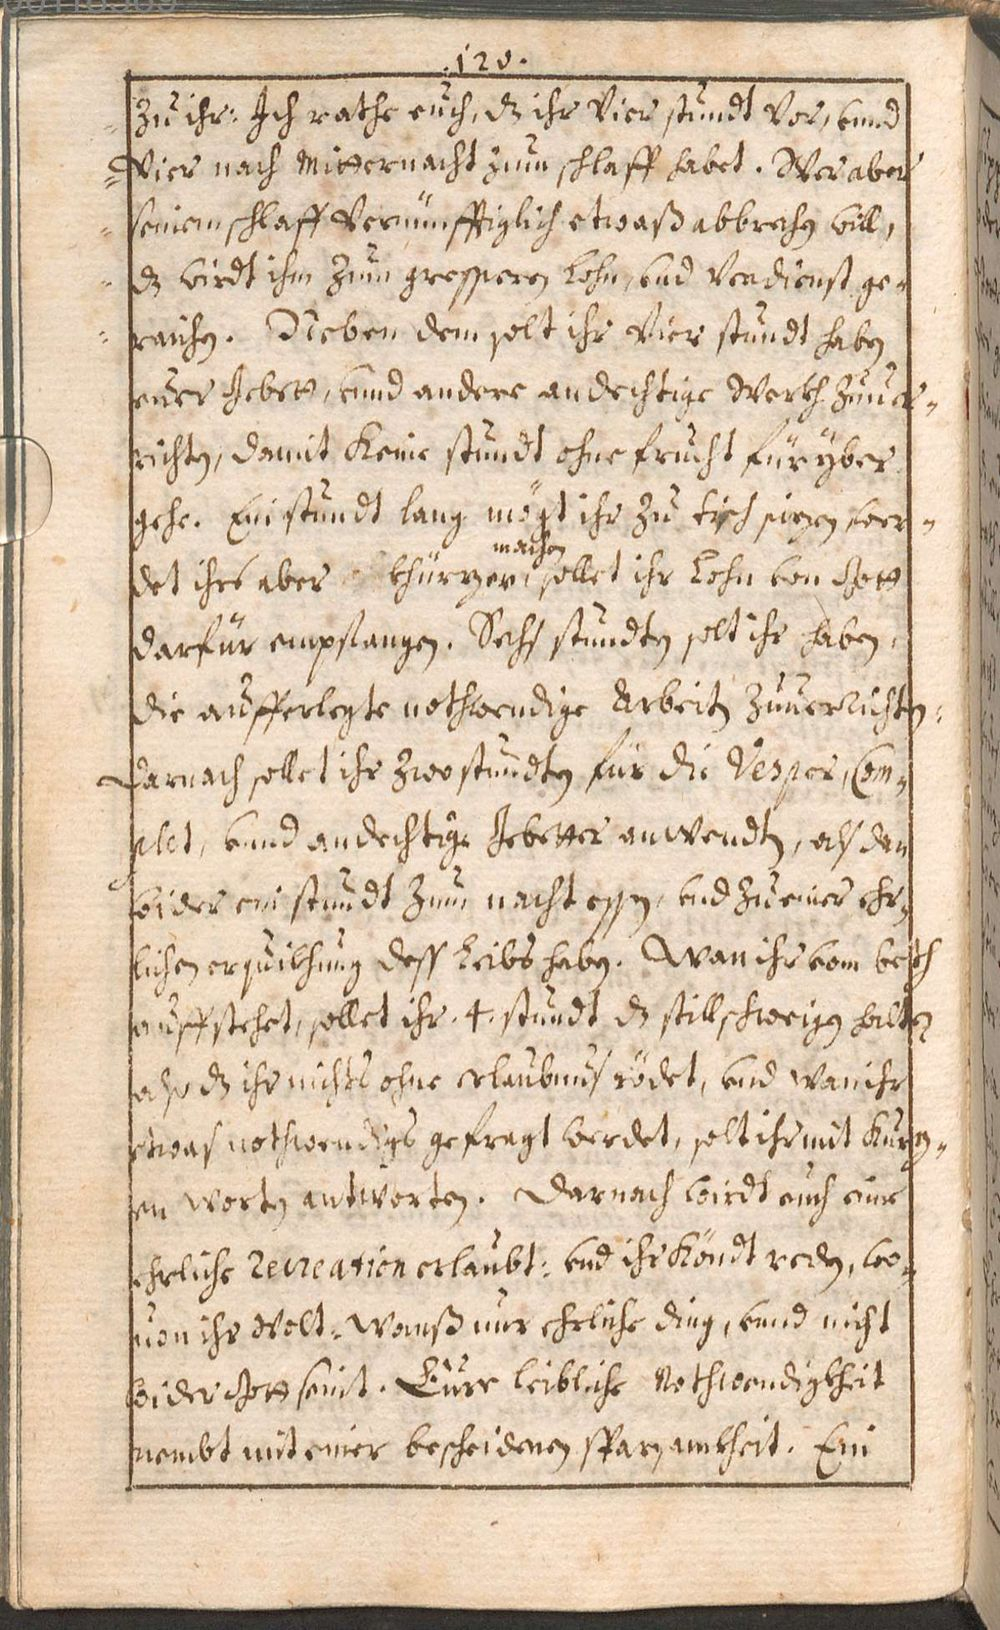 .120.
Zu ihr: Ich rathe euch, dz ihr Vier stundt Vor, vnnd
Vier nach Mitternacht zum schlaff habet. Wer aber
seinem schlaff Vernünfftiglich etwaß abbrechen will,
dz wirdt ihm zum gressperen Lohn, vnd Verdienst ge-
raichen. Neben dem solt ihr Vier stundt haben
euer Gebett, vnnd andere andechtige Werkh zuuer-
richten, damit keine stundt ohne frucht fürüber
gehe. Ein stundt lang mögt ihr zu tisch sizen wer-
det ihrs aber khürzer machen, sollet ihr Lohn von Gott
darfür empfangen. Sechs stundten solt ihr haben,
die aufferlegte nothwendige Arbeiten zuuerrichten,
Darnach sollet ihr zwo stundten für die Vesper, Com-
plet, vnnd andechtige Gebetter anwendten, als dan
wider ein stundt zum nacht essen, vnd zu einer ehr-
lichen erquikhung dess Leibs haben. Wan ihr vom beth
auffstehet, sollet ihr .4. stundt dz stillschweigen halten
also dz ihr nichts ohne erlaubnus rödet, vnd wan ihr
etwas nothwendigs gefragt werdet, solt ihr mit kurz-
en worten antworten. Darnach wirdt euch eine
ehrliche recreation erlaubt: vnd ihr köndt reden, wo-
uon ihr wolt, wanß nur ehrliche ding, vnnd nicht
wider Gott seint. Eüre leibliche Nothwendigkheit
nembt mit einer bescheidenen sparsamkheit. Ein